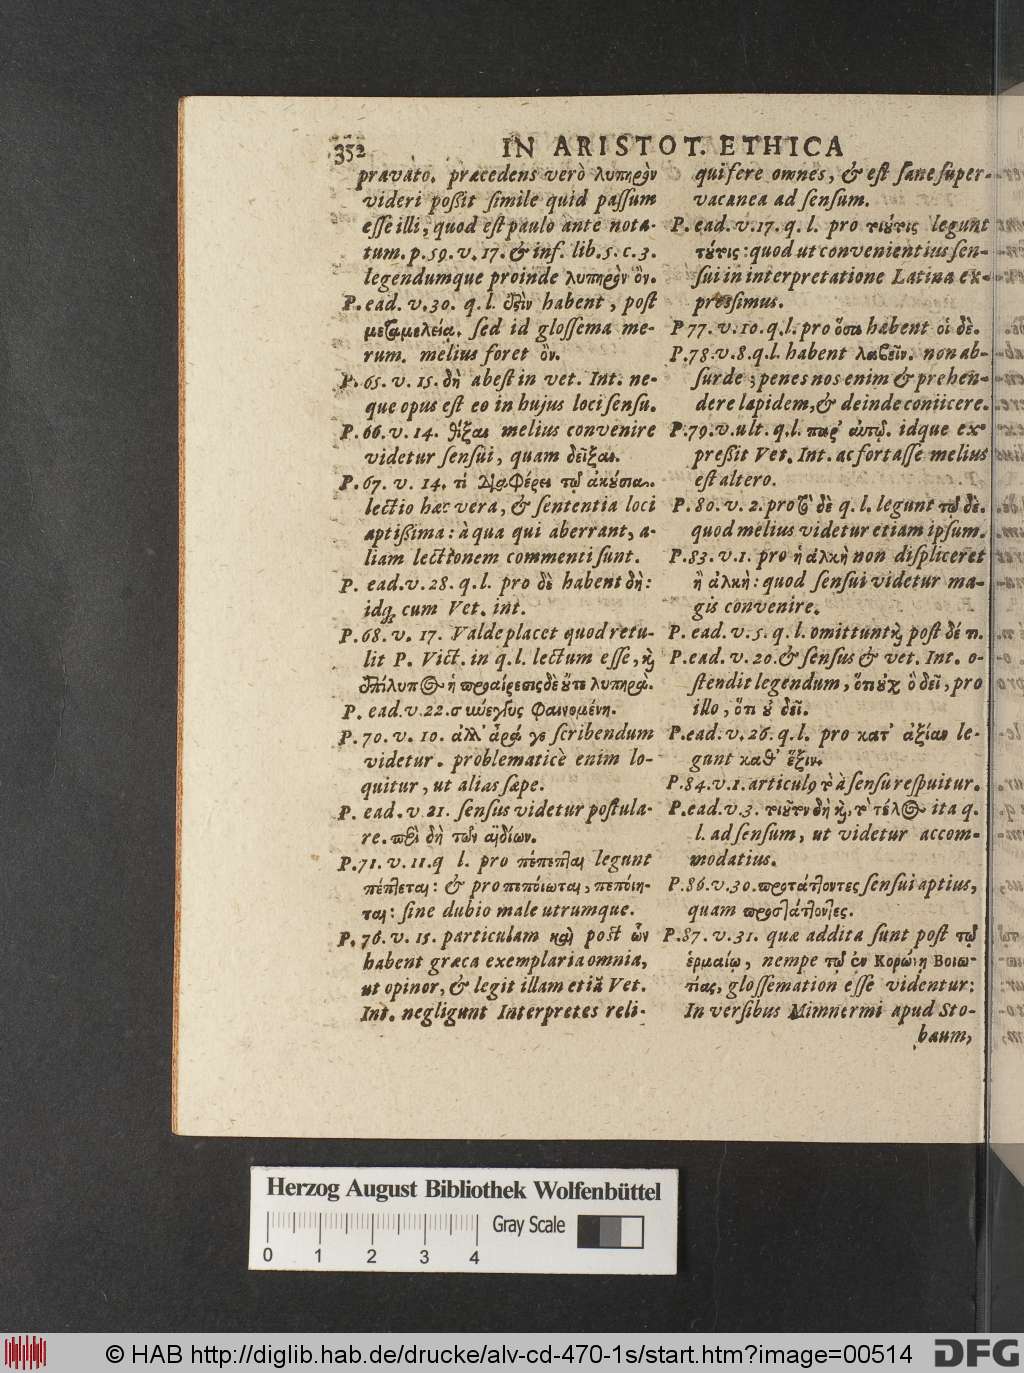 352 IN ARISTOT. ETHICA
pravato. præcedens verò λυπηρὸν
videri poßit simile quid passum
esse illi, quod est paulo ante nota-
tum. p. 59. v. 17. & inf. lib. 5. c. 3.
legendumque proinde λυπηρὸν ὂν.
P. ead. v. 30. q. l. ἐστὶν habent, post
μεταμελείᾳ. sed id glossema me-
rum. melius foret ὂν.
P. 65. v. 15. δὴ abest in vet. Int. ne-
que opus est eo in hujus loci sensu.
P. 66. v. 14. θίξαι melius convenire
videtur sensui, quam δεῖξαι.
P. 67. v. 14. τί διαφέρει τῷ ἀκούσια.
lectio hæc vera, & sententia loci
aptißima: à qua qui aberrant, a-
liam lectionem commenti sunt.
P. ead. v. 28. q. l. pro δὲ habent δὴ:
idq; cum Vet. int.
P. 68. v. 17. Valde placet quod retu-
lit P. Vict. in q. l. lectum esse, καὶ
ἐπίλυπος ἡ προαίρεσις δὲ οὔτε λυπηροῦ.
P. ead. v. 22. σύνεγγυς φαινομένη.
P. 70. v. 10. ἀλλ' ἆρά γε scribendum
videtur. problematicè enim lo-
quitur, ut alias sæpe.
P. ead. v. 21. sensus videtur postula-
re. περὶ δὴ τῶν αἰδίων.
P. 71. v. 11. q l. pro πέπεπται legunt
πέπλεται: & pro πεπόιωται, πεπόιη-
ται: sine dubio male utrumque.
P. 76. v. 15. particulam καὶ post ὧν
habent græca exemplaria omnia,
ut opinor, & legit illam etiã Vet.
Int. negligunt Interpretes reli-
qui fere omnes, & est sane super-
vacanea ad sensum.
P. ead. v. 17. q. l. pro τιούτις legunt
τούτις: quod ut convenientius sen-
sui in interpretatione Latina ex-
pressimus.
P 77. v. 10. q. l. pro ὅσοι habent οἱ δὲ.
P. 78. v. 8. q. l. habent λαβεῖν. non ab-
surde; penes nos enim & prehen-
dere lapidem, & deinde coniicere.
P. 79. v. ult. q. l. παρ' αὐτῷ. idque ex-
preßit Vet. Int. ac fortasse melius
est altero.
P. 80. v. 2. pro τὸ δὲ q. l. legunt τῷ δὲ.
quod melius videtur etiam ipsum.
P. 83. v. 1. pro ἡ ἀλκὴ non displiceret
ἢ ἀλκὴ: quod sensui videtur ma-
gis convenire.
P. ead. v. 5. q. l. omittunt καὶ post δέ τι.
P. ead. v. 20. & sensus & vet. Int. o-
stendit legendum, ὅτι οὐχ ὃ δεῖ, pro
illo, ὅτι οὐ δεῖ.
P. ead. v. 26. q. l. pro κατ' ἀξίαν le-
gunt καθ' ἕξιν.
P. 84. v. 1. articulꝰ τὸ à sensu respuitur.
P. ead. v. 3. τιοῦτον δὴ καὶ, τὸ τέλος ita q.
l. ad sensum, ut videtur accom-
modatius.
P. 86. v. 30. προτάττοντες sensui aptius,
quam προστάττοντες.
P. 87. v. 31. quæ addita sunt post τῷ
ἑρμαίῳ, nempe τῷ ἐν Κορώνῃ Βοιω-
τίας, glossemation esse videntur:
In versibus Mimnermi apud Sto-
bæum,
Herzog August Bibliothek Wolfenbüttel
0 1 2 3 4
Gray Scale
© HAB http://diglib.hab.de/drucke/alv-cd-470-1s/start.htm?image=00514
DFG